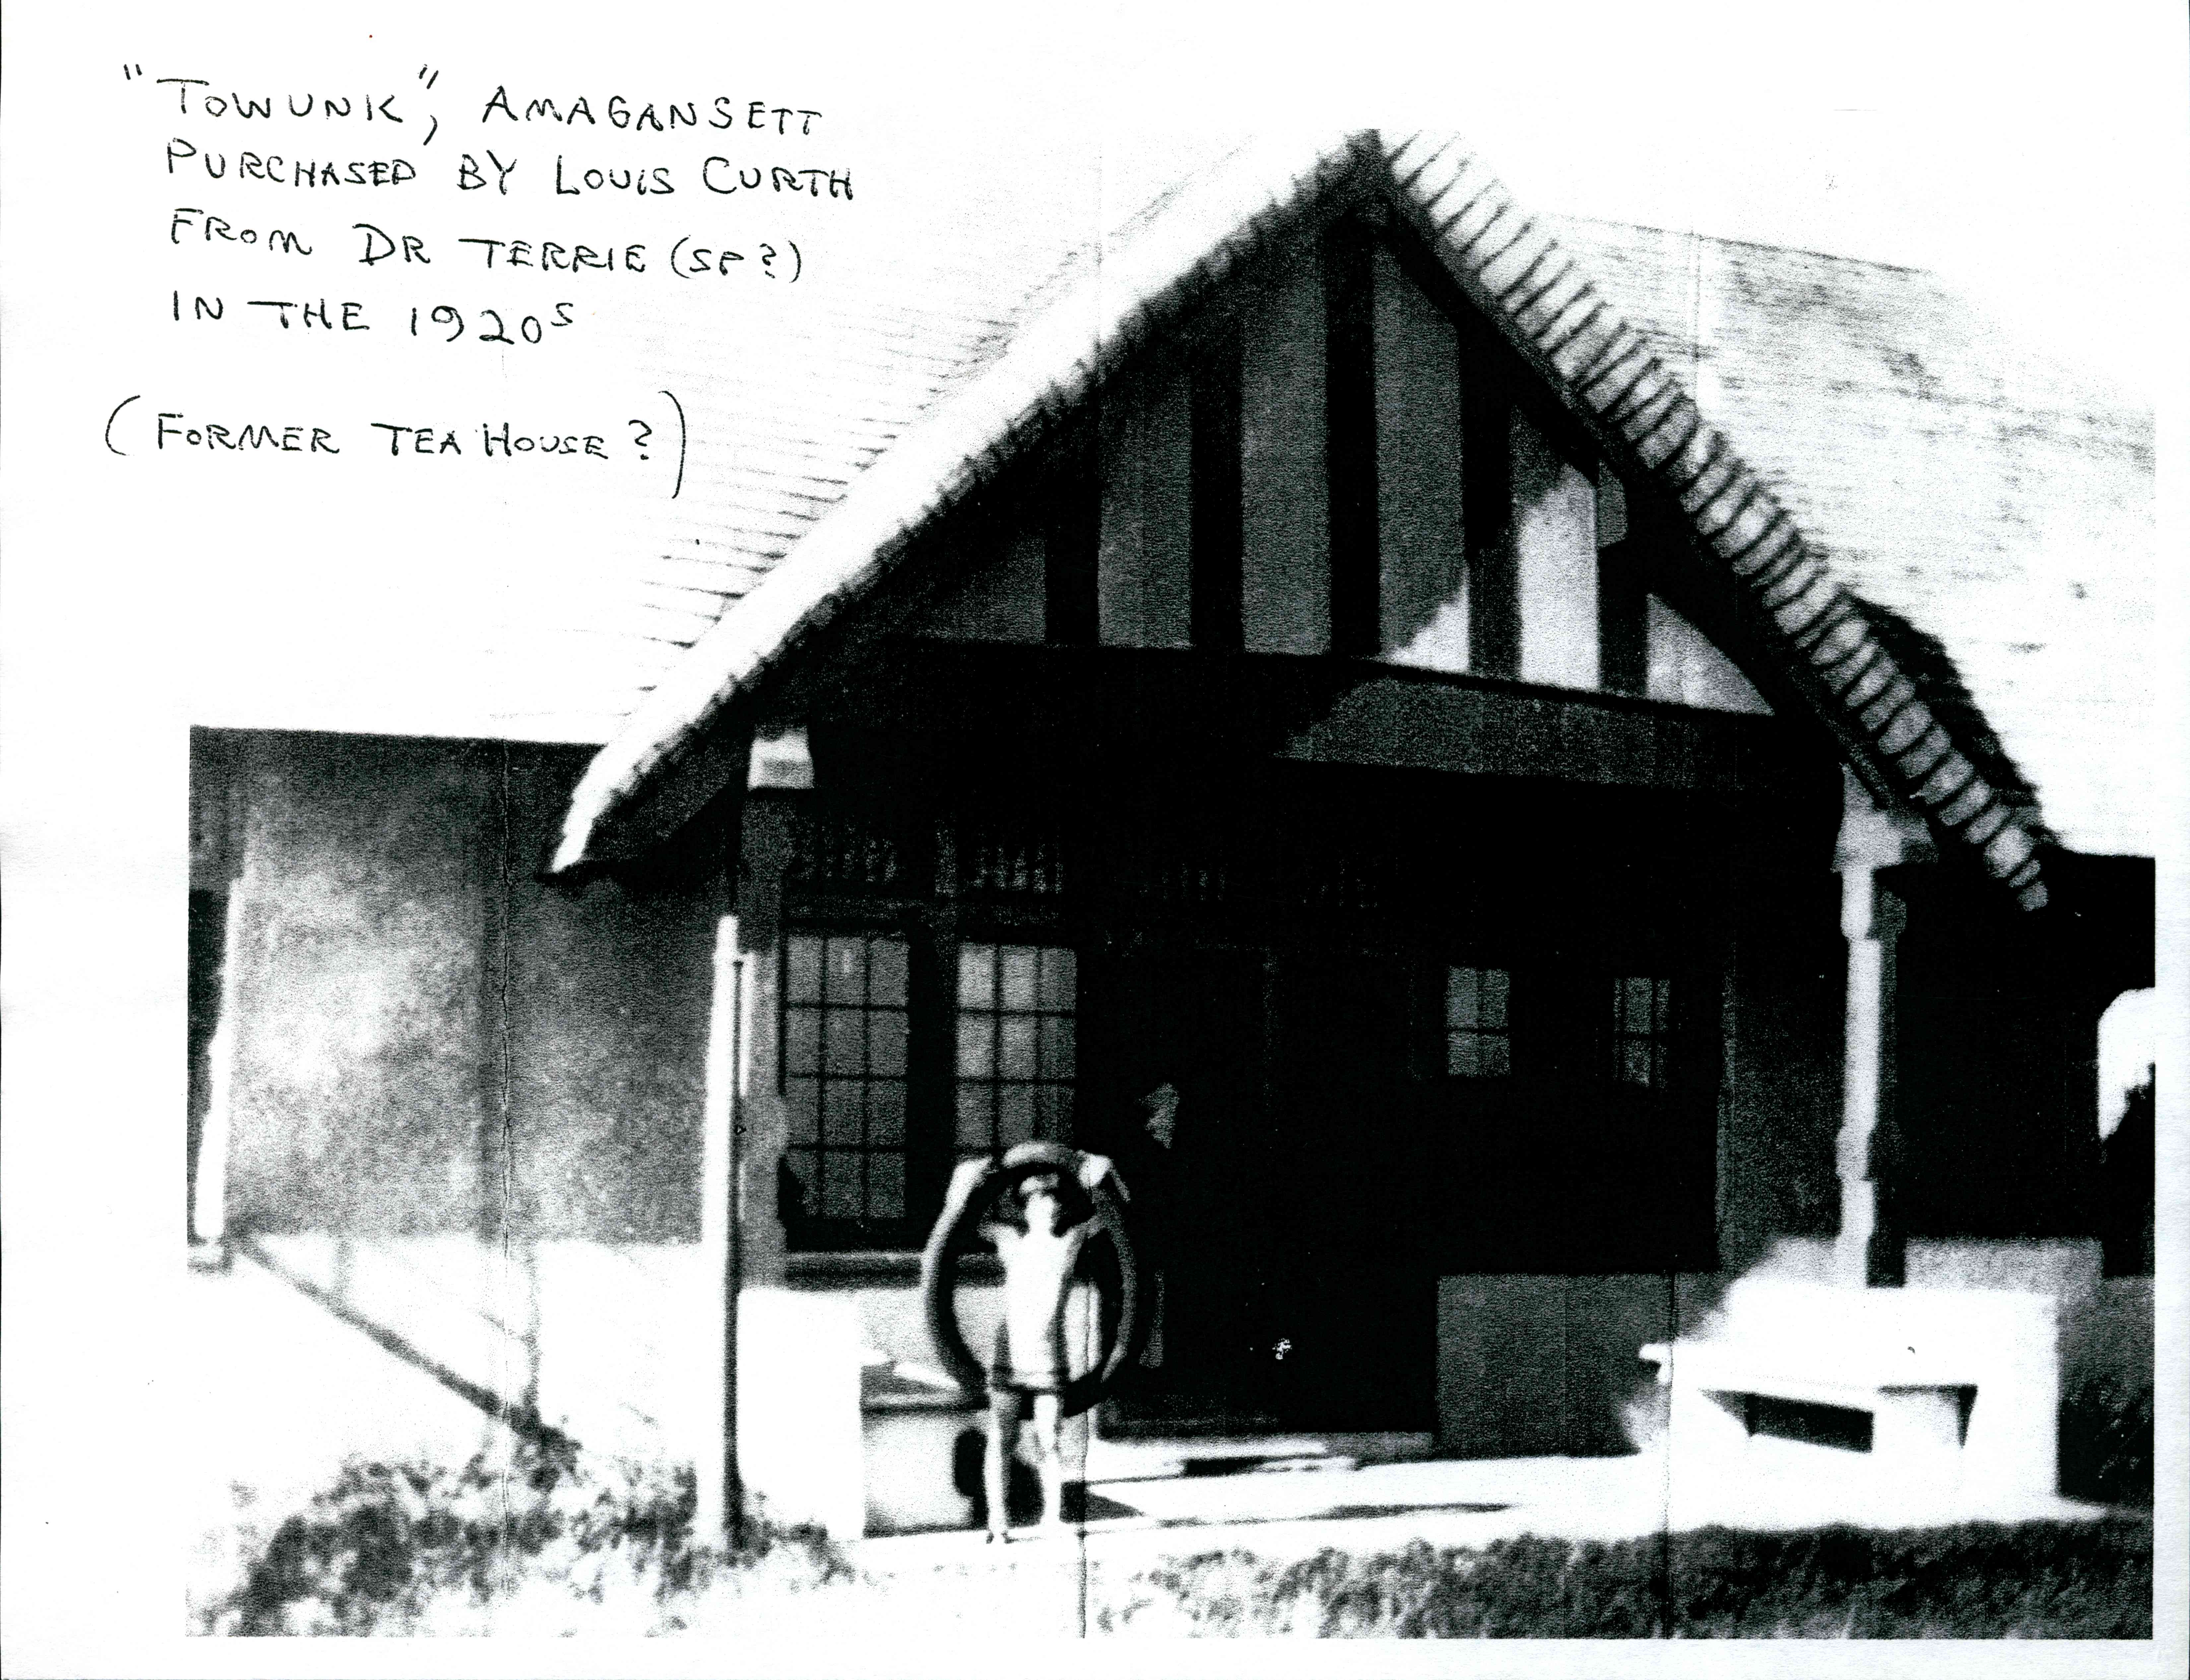 "TOWUNK", AMAGANSETT
PURCHASED BY LOUIS CURTH
FROM DR TERRIE (SP?)
IN THE 1920S
(FORMER TEA HOUSE?)